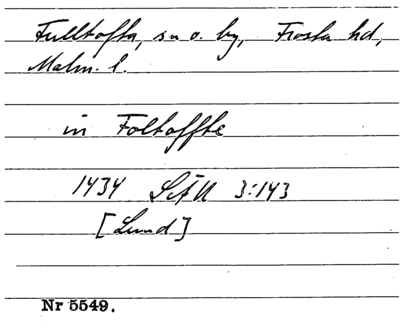 Fulltofta, sn o. by, Frosta hd,
Malm. l.
in Foltoffte
1434 LÄU 3:143
[Lund]
Nr 5549.